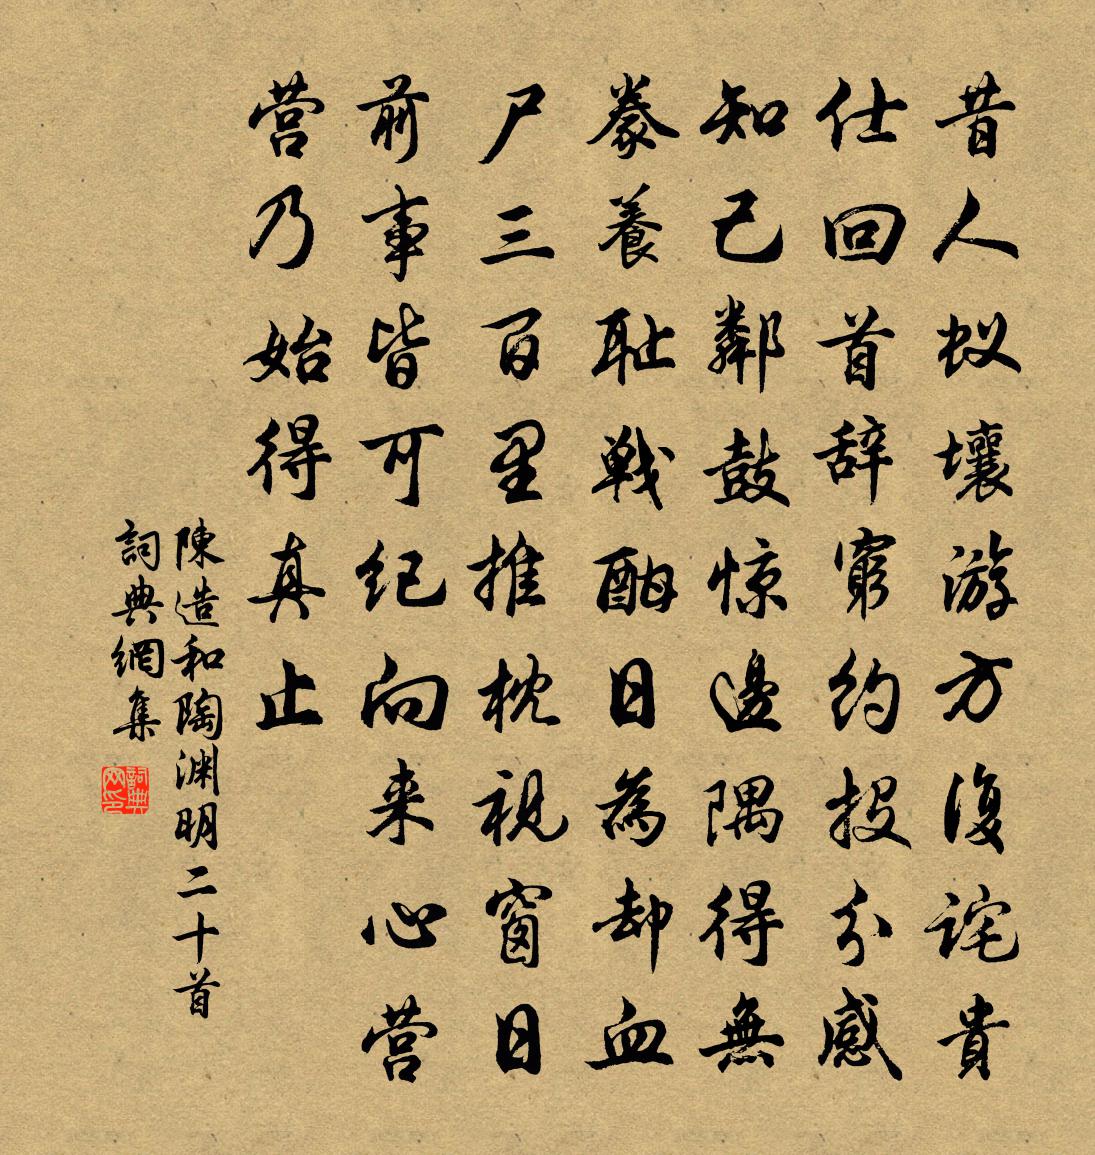 昔人蚁壤游方復詫貴
仕回首辞窮約投分感
知己鄰鼓惊邊隅得無
豢養耻戦酣日為却血
尸三百里推枕視窗日
前事皆可纪向来心营
营乃始得真止
陳造和陶渊明二十首
詞典網集
詞典网印